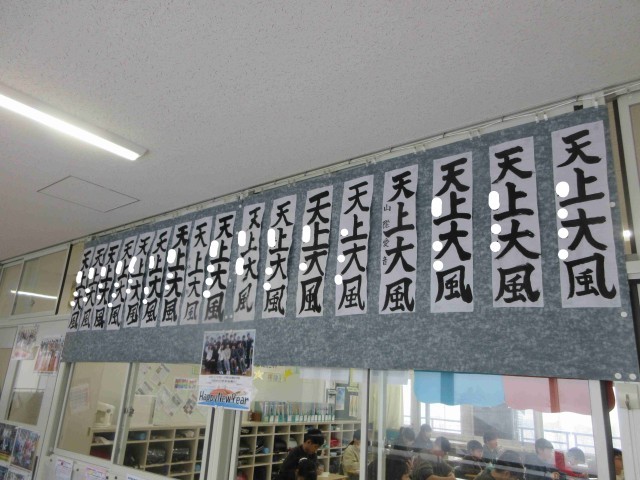 天上大風
天上大風
天上大風
天上大風
天上大風
天上大風
天上大風
天上大風
天上大風
天上大風
天上大風
天上大風
天上大風
天上大風
天上大風
天上大風
天上大風
Happy New Year